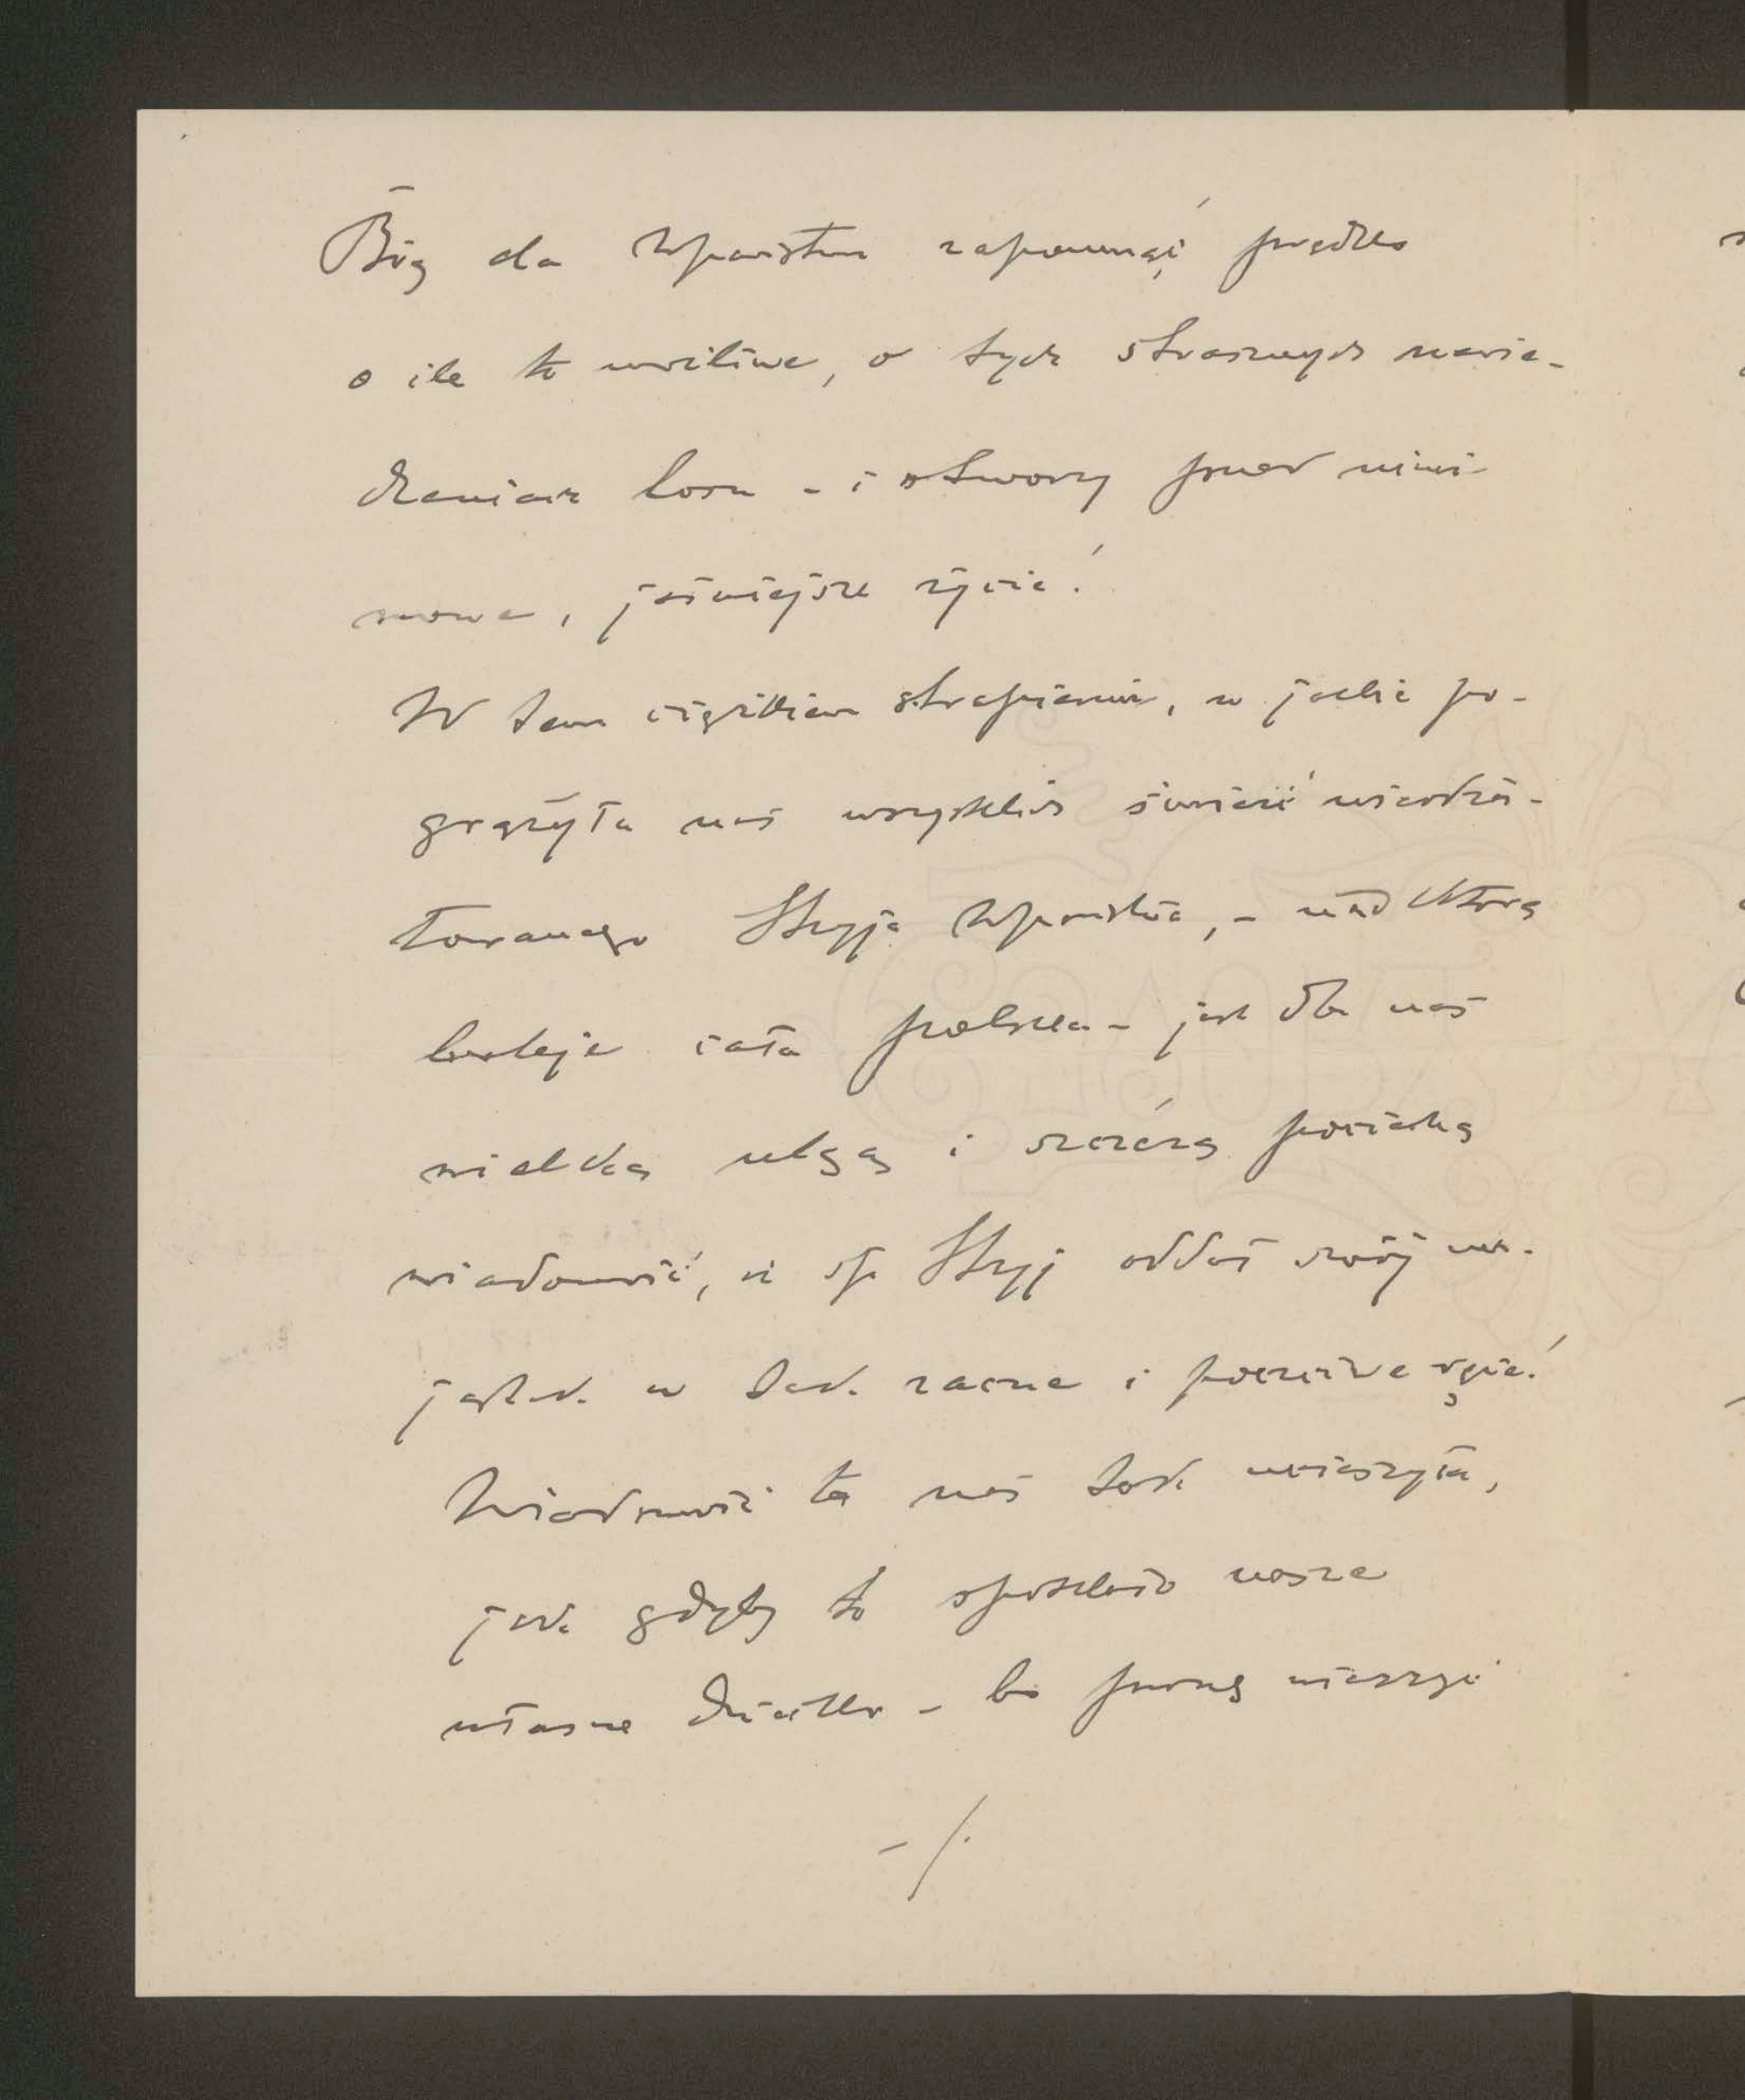 Bóg da WPaństwu zapomnąć prędko
o ile to możliwe, o tych strasznych nawie-
dzeniach losu - i otworzy przed nimi
nowe, jaśniejsze życie!
W tem ciężkiem strapieniu, w jakie po-
grążyła nas wszystkich śmierć nieodża-
łowanego Stryja WPaństwa, - nad którą
boleje cała Polska - jest dla nas
wielką ulgą i szczerą pociechą
wiadomość, iż śp Stryj oddał swój ma-
jątek w tak zacne i poczciwe ręce!
Wiadomość ta nas tak ucieszyła,
jak gdyby to spotkało nasze
własne dziecko - bo proszę wierzyć
- /.